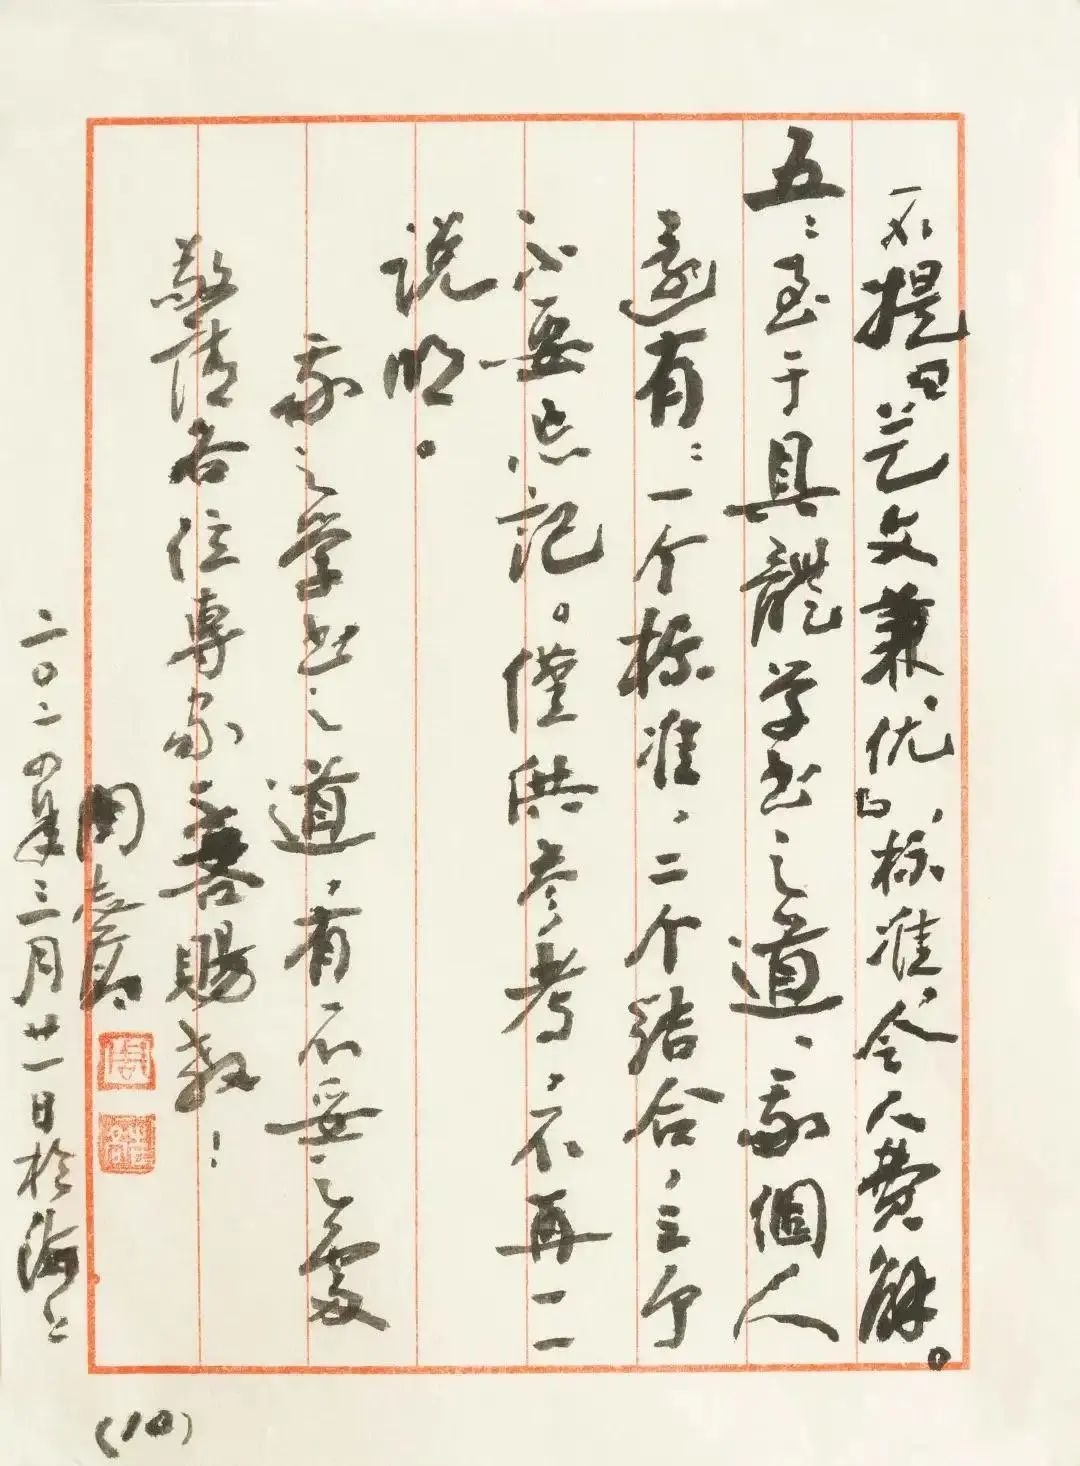 不提「艺文兼优」标准,令人费解。
五:至于具體学书之道、我個人
还有:一个标准,二个结合,三个
不要忘记。僅供参考,不再一一
说明。
我之学书之道,有不妥之處
敬请各位專家吝賜教!
周志高
二〇二四年三月廿一日於海上
(10)